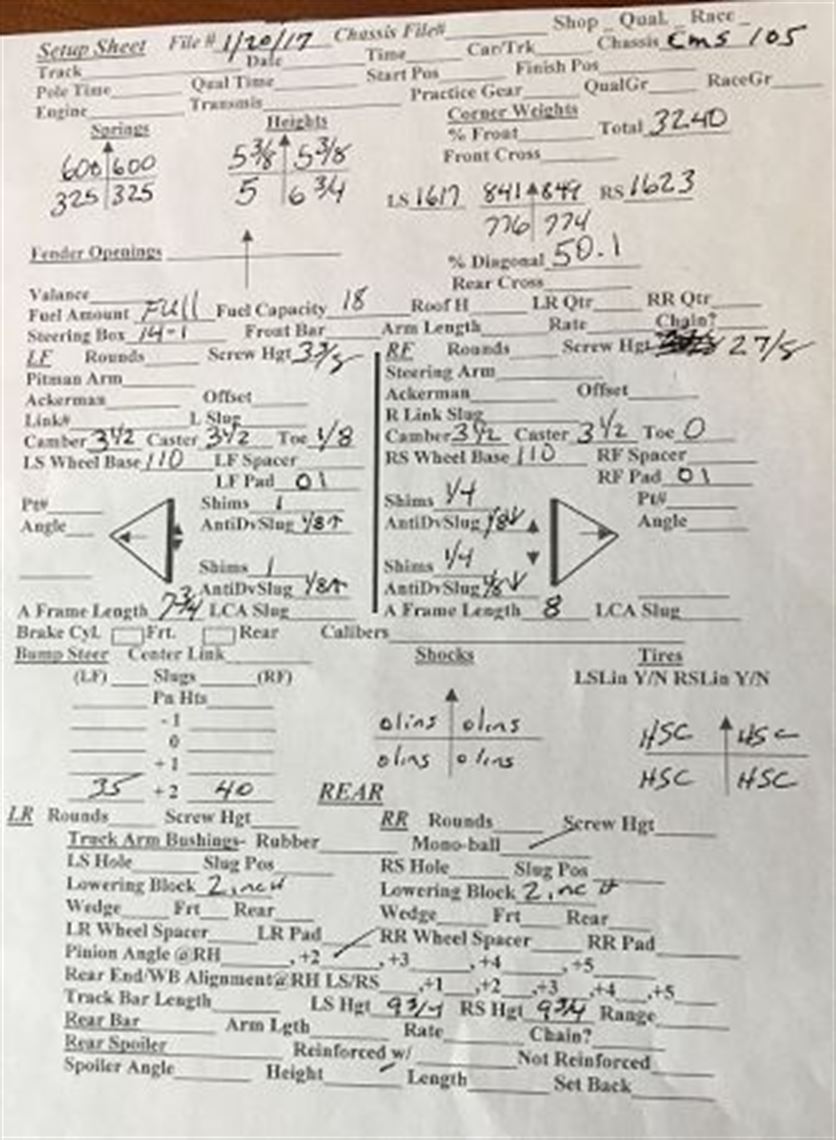 Shop _ Qual. _ Race _
Setup Sheet File # 1/20/17 Chassis File#
Date Time Car/Trk Chassis Cms 105
Track
Pole Time Qual Time Start Pos Finish Pos
Engine Transmis Practice Gear QualGr RaceGr
Springs Heights Corner Weights
% Front Total 3240
Front Cross
600 600 5 3/8 5 3/8
325 325 5 6 3/4
LS 1617 841 849 RS 1623
776 774
Fender Openings
% Diagonal 50.1
Rear Cross
Valance
Fuel Amount Full Fuel Capacity 18 Roof H LR Qtr RR Qtr
Steering Box 14-1 Front Bar Arm Length Rate Chain?
LF Rounds Screw Hgt 3 3/8 RF Rounds Screw Hgt 2 7/8
Pitman Arm Steering Arm
Ackerman Offset Ackerman Offset
Link# L Slug R Link Slug
Camber 3 1/2 Caster 3 1/2 Toe 1/8 Camber 3 1/2 Caster 3 1/2 Toe 0
LS Wheel Base 110 LF Spacer RS Wheel Base 110 RF Spacer
LF Pad 01 RF Pad 01
Pt# Shims 1 Shims 1/4 Pt#
Angle AntiDvSlug 1/8↑ AntiDvSlug 1/8↓ Angle
Shims 1 Shims 1/4
AntiDvSlug 1/8↑ AntiDvSlug 1/8↓
A Frame Length 7 3/4 LCA Slug A Frame Length 8 LCA Slug
Brake Cyl. Frt. Rear Calibers
Bump Steer Center Link Shocks Tires
(LF) Slugs (RF) LSLin Y/N RSLin Y/N
Pn Hts
- 1
0
+ 1
35 + 2 40
olins olins
olins olins
HSC HSC
HSC HSC
REAR
LR Rounds Screw Hgt RR Rounds Screw Hgt
Truck Arm Bushings- Rubber Mono-ball
LS Hole Slug Pos RS Hole Slug Pos
Lowering Block 2 inch Lowering Block 2 inch
Wedge Frt Rear Wedge Frt Rear
LR Wheel Spacer LR Pad RR Wheel Spacer RR Pad
Pinion Angle @RH ,+2 ,+3 ,+4 ,+5
Rear End/WB Alignment@RH LS/RS ,+1 ,+2 ,+3 ,+4 ,+5
Track Bar Length LS Hgt 9 3/4 RS Hgt 9 3/4 Range
Rear Bar Arm Lgth Rate Chain?
Rear Spoiler Reinforced w/ Not Reinforced
Spoiler Angle Height Length Set Back